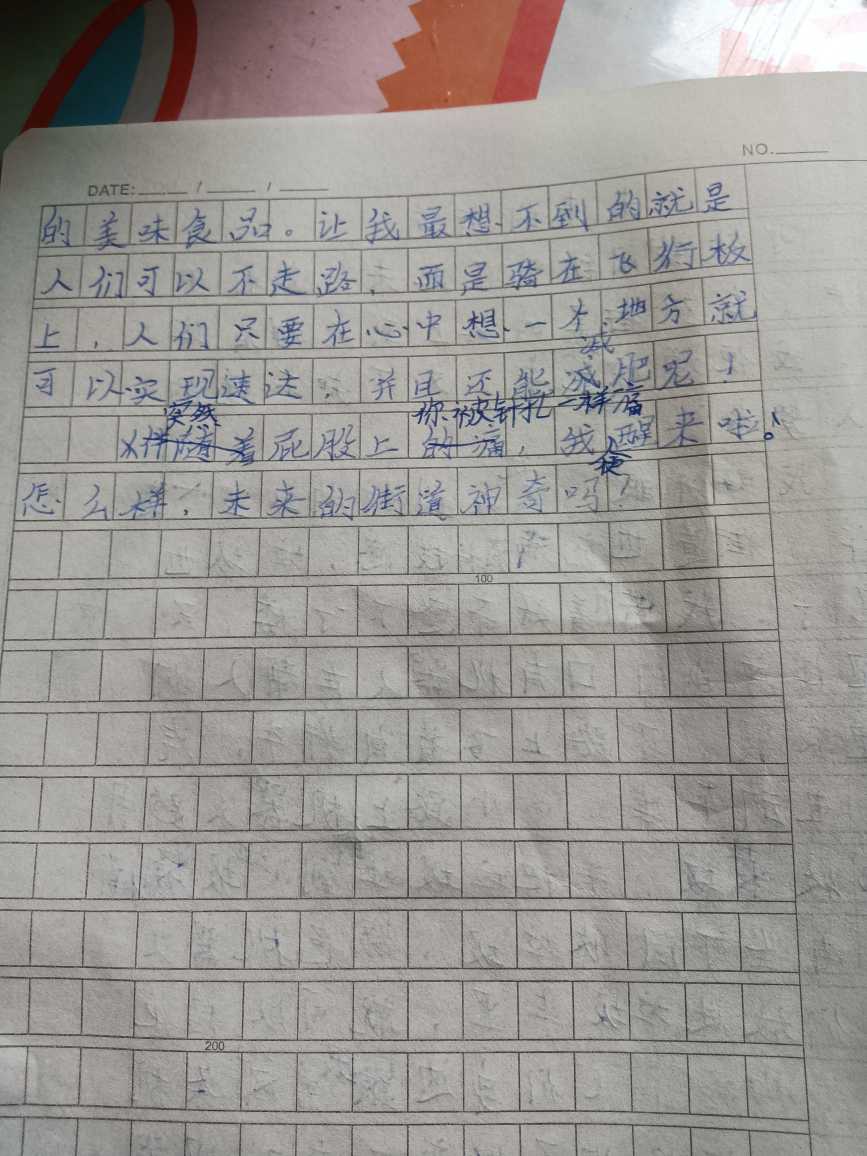 NO.
DATE: / /
的美味食品。让我最想不到的就是
人们可以不走路，而是骑在飞行板
上，人们只要在心中想一个地方就
减
可以实现速达。并且还能减肥呢！
突然 被针扎一样痛
伴随着屁股上的痛，我醒来啦。
便
怎么样，未来的街道神奇吗？
100
200